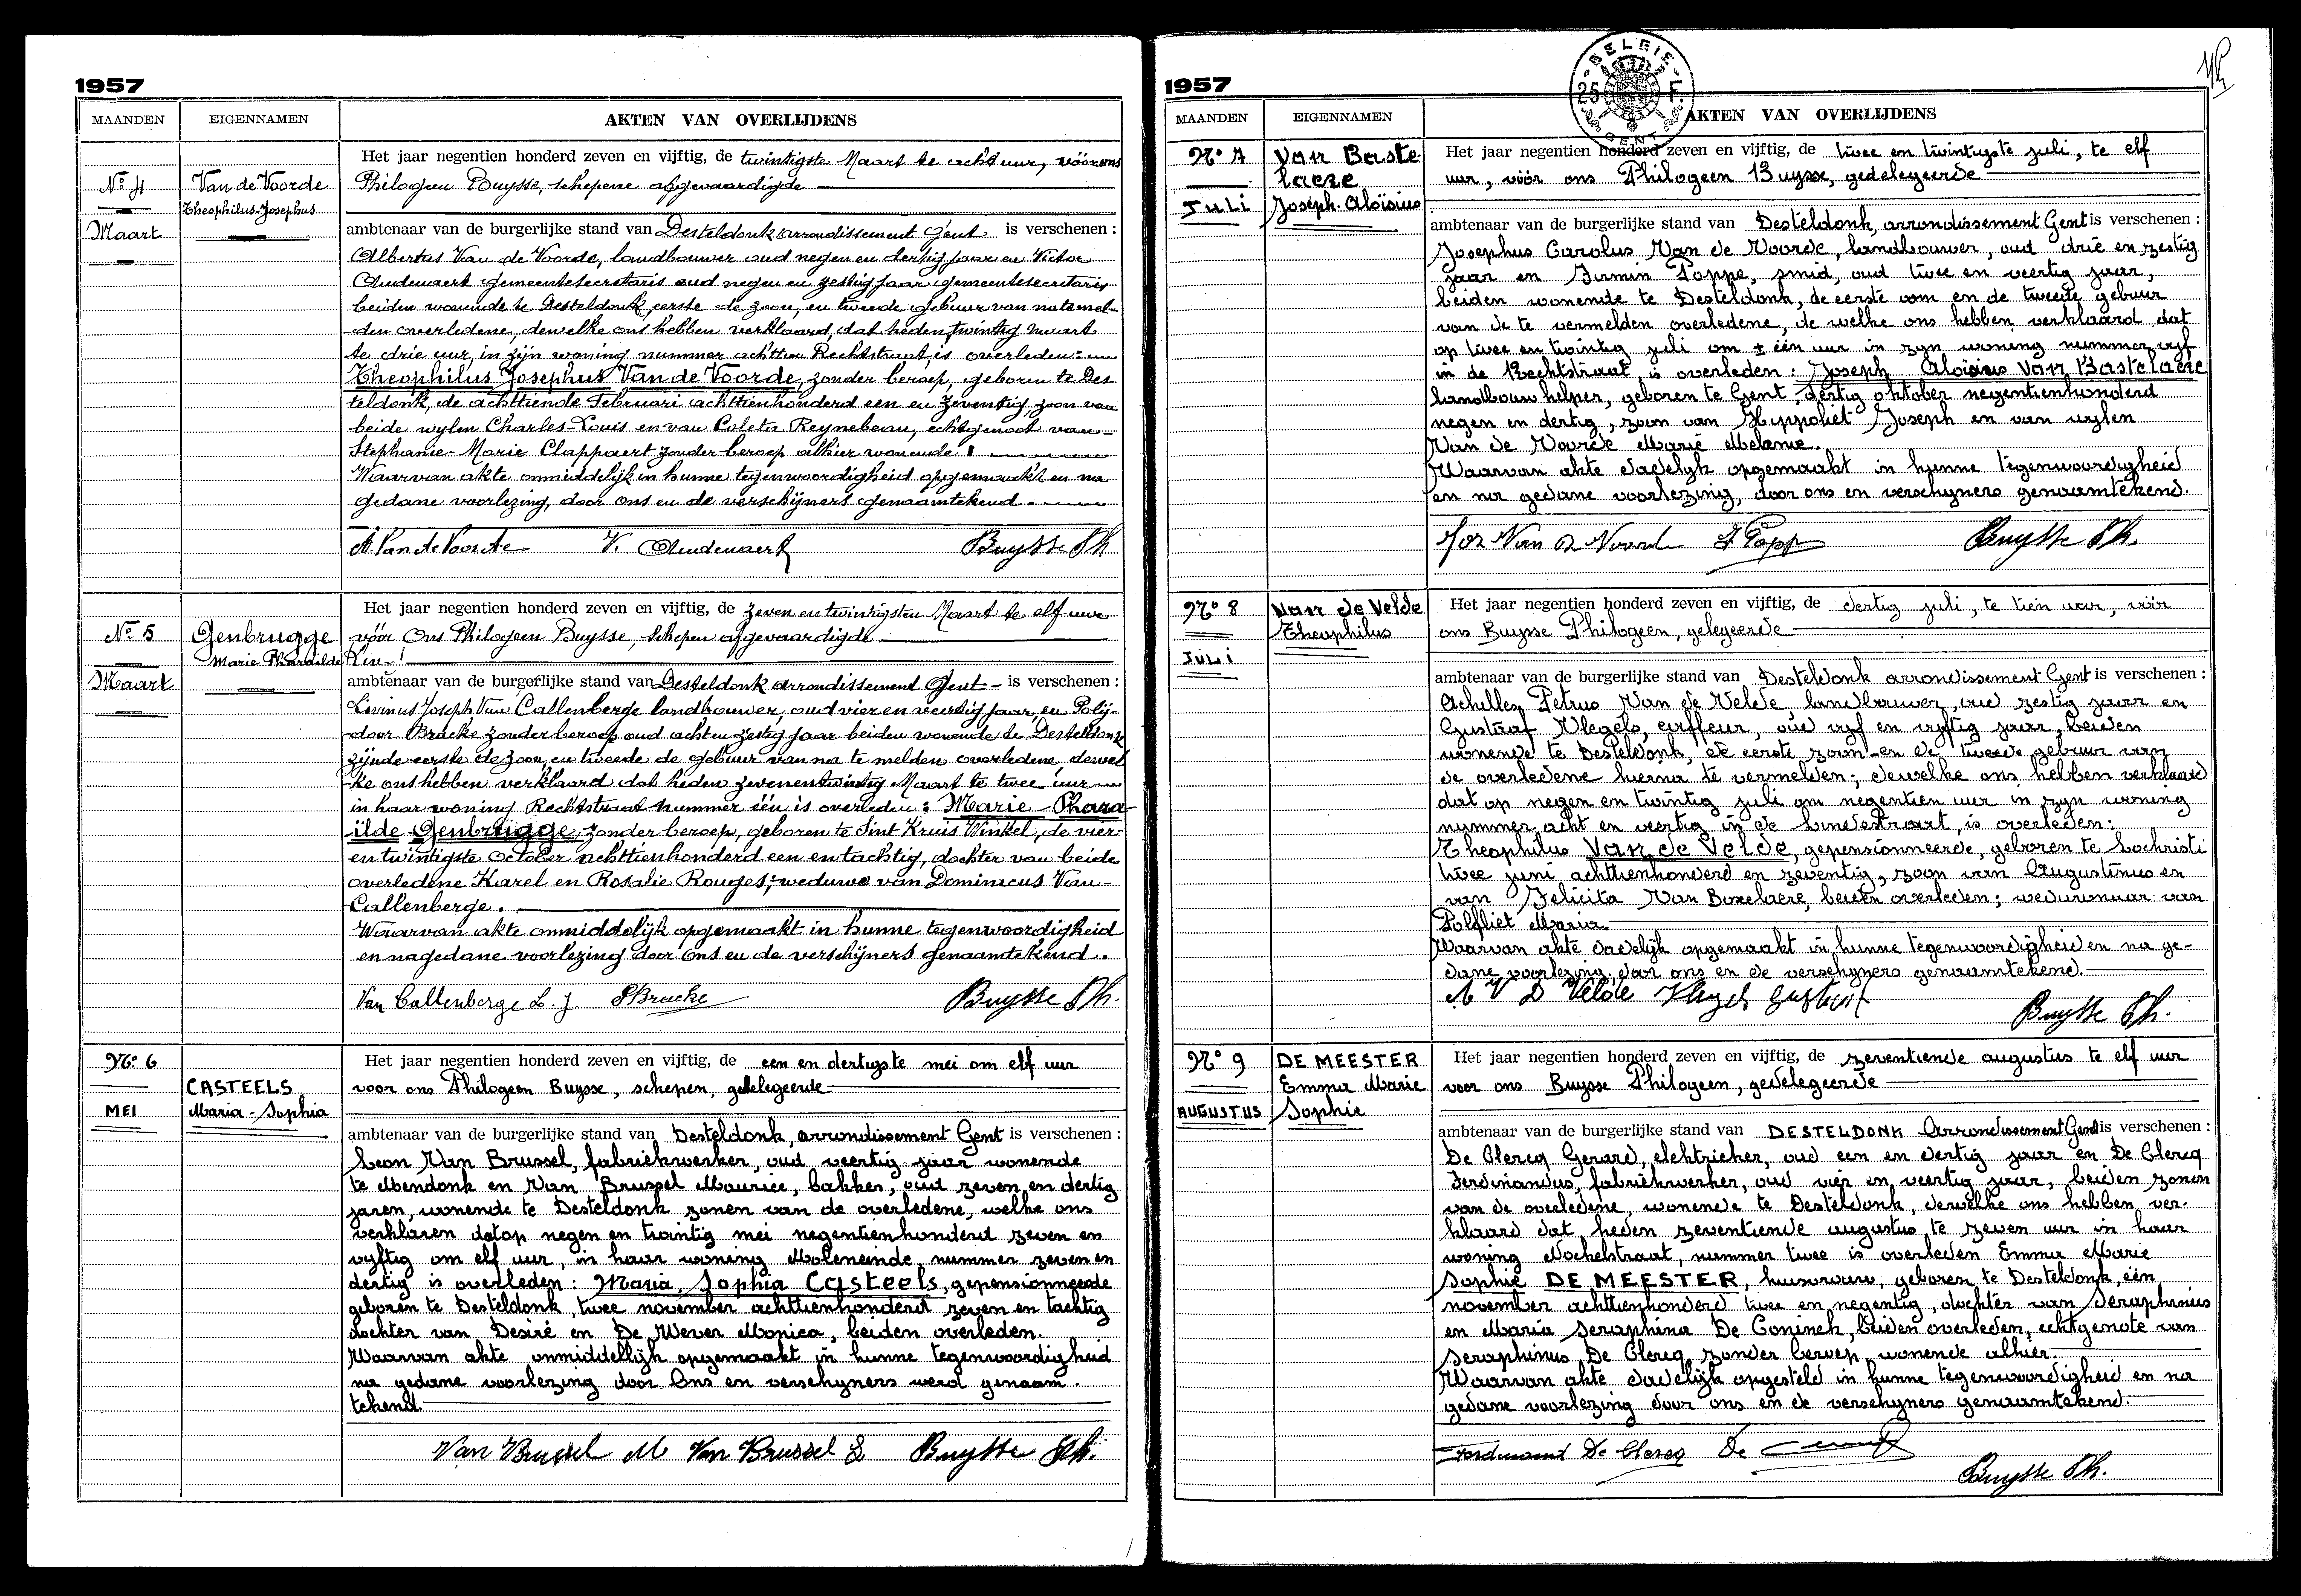 1957
MAANDEN
EIGENNAMEN
AKTEN VAN OVERLIJDENS
No 4
Maart
Van de Voorde
Theophilus-Josephus
Het jaar negentien honderd zeven en vijftig, de twintigste Maart te acht uur, vóór ons
Philogeen Buysse, schepene afgevaardigde
ambtenaar van de burgerlijke stand van Desteldonk arrondissement Gent is verschenen :
Albertus Van de Voorde, landbouwer oud negen en dertig jaar en Victor
Oudenaert gemeentesecretaris oud negen en zestig jaar gemeentesecretaris
beiden wonende te Desteldonk eerste de zoon, en tweede gebuur van natemel-
den overledene, denwelke ons hebben verklaard, dat heden twintig maart
te drie uur, in zijn woning nummer achttien Rechtstraat, is overleden:
Theophilus Josephus Van de Voorde, zonder beroep, geboren te Des-
teldonk, de achttiende Februari achttienhonderd een en zeventig, zoon van
beide wylen Charles-Louis en van Coleta Reynebeau, echtgenoot van
Stephanie-Marie Clappaert zonder beroep alhier wonende.
Waarvan akte onmiddelijk in hunne tegenwoordigheid opgemaakt en na
gedane voorlezing, door ons en de verschijners genaamtekend.
A. Van de Voorde V. Oudenaert Buysse Ph
No 5
Maart
Genbrugge
Marie Pharaïlde
Het jaar negentien honderd zeven en vijftig, de zeven en twintigsten Maart te elf ure
vóór Ons Philogeen Buysse, schepen afgevaardigde
ambtenaar van de burgerlijke stand van Desteldonk arrondissement Gent - is verschenen :
Livinus Joseph Van Callenberge landbouwer, oud vier en veertig jaar, en Poly-
door Bracke zonder beroep oud acht en zestig jaar beiden wonende te Desteldonk
zijnde eerste de zoon, en tweede de gebuur van na te melden overledene, dewel
ke ons hebben verklaard dat heden zevenentwintig Maart te twee uur
in haar woning Rechtstraat nummer één is overleden : Marie - Phara-
ilde Genbrugge, zonder beroep, geboren te Sint Kruis Winkel, de vier-
en twintigste October achttienhonderd een en tachtig, dochter van beide
overledene Karel en Rosalie Rouges; weduwe van Dominicus Van-
Callenberge.
Waarvan akte onmiddelijk opgemaakt in hunne tegenwoordigheid
en nagedane voorlezing door Ons en de verschijners genaamtekend.
Van Callenberge L. J PBracke Buysse Ph.
No. 6
MEI
CASTEELS
Maria - Sophia
Het jaar negentien honderd zeven en vijftig, de een en dertigste mei om elf uur
voor ons Philogeen Buysse, schepen, gedelegeerde
ambtenaar van de burgerlijke stand van Desteldonk, arrondissement Gent is verschenen :
Leon Van Brussel, fabriekwerker, oud veertig jaar wonende
te Mendonk en Van Brussel Maurice, bakker, oud zeven en dertig
jaren, wonende te Desteldonk zonen van de overledene, welke ons
verklaren dat op negen en twintig mei negentienhonderd zeven en
vyftig om elf uur, in haar woning Moleneinde nummer zeven en
dertig is overleden : Maria Sophia Casteels, gepensionneerde
geboren te Desteldonk, twee november achttienhonderd zeven en tachtig
dochter van Desiré en De Wever Monica, beiden overleden.
Waarvan akte onmiddellijk opgemaakt in hunne tegenwoordigheid
na gedane voorlezing door Ons en verschyners werd genaam-
tekend.
Van Brussel M Van Brussel L Buysse Ph.
1957
BELGIE
25 F.
GENT
MAANDEN
EIGENNAMEN
AKTEN VAN OVERLIJDENS
No 7
JULI
Van Baste
laere
Joseph. Aloïsius
Het jaar negentien honderd zeven en vijftig, de twee en twintigste juli, te elf
uur, vóór ons Philogeen Buysse, gedelegeerde
ambtenaar van de burgerlijke stand van Desteldonk, arrondissement Gent is verschenen :
Josephus Carolus Van de Voorde, landbouwer, oud drie en zestig
jaar en Firmin Poppe, smid, oud twee en veertig jaar,
beiden wonende te Desteldonk, de eerste oom en de tweede gebuur
van de te vermelden overledene, de welke ons hebben verklaard dat
op twee en twintig juli om ± één uur in zyn woning nummer vyf
in de Rechtstraat, is overleden : Joseph Aloisius Van Bastelaere
landbouwhelper, geboren te Gent, dertig oktober negentienhonderd
negen en dertig, zoon van Hippoliet Joseph en van wylen
Van de Voorde Marie Melanie.
Waarvan akte dadelyk opgemaakt in hunne tegenwoordigheid
en na gedane voorlezing, door ons en verschyners genaamtekend.
Jos Van De Voorde F Poppe Buysse Ph.
No 8
JULI
Van de Velde
Theophilus
Het jaar negentien honderd zeven en vijftig, de dertig juli, te tien uur, vóór
ons Buysse Philogeen, gelegeerde
ambtenaar van de burgerlijke stand van Desteldonk arrondissement Gent is verschenen :
Achilles Petrus Van de Velde landbouwer, oud zestig jaar en
Gustaaf Vlegels, coiffeur, oud vyf en vyftig jaar, beiden
wonende te Desteldonk, de eerste zoon en de tweede gebuur van
de overledene hierna te vermelden; dewelke ons hebben verklaard
dat op negen en twintig juli om negentien uur in zyn woning
nummer acht en veertig in de Lindestraat, is overleden:
Theophilus Van de Velde, gepensionneerde, geboren te Lochristi
twee juni achttienhonderd en zeventig, zoon van Augustinus en
van Felicita Van Boxelaere, beiden overleden; weduwnaar van
Polfliet Maria.
Waarvan akte dadelijk opgemaakt in hunne tegenwoordigheid en na ge-
dane voorlezing door ons en de verschyners genaamtekend.
A V D Velde Vlegels Gustaaf
Buysse Ph.
No 9
AUGUSTUS
DE MEESTER
Emma Marie
Sophie
Het jaar negentien honderd zeven en vijftig, de zeventiende augustus te elf uur
voor ons Buysse Philogeen, gedelegeerde
ambtenaar van de burgerlijke stand van DESTELDONK Arrondissement Gent is verschenen :
De Clercq Gerard, elektrieker, oud een en dertig jaar en De Clercq
Ferdinandus, fabriekwerker, oud vier en veertig jaar, beiden zonen
van de overledene, wonende te Desteldonk, derwelke ons hebben ver-
klaard dat heden zeventiende augustus te zeven uur in haar
woning Mochelstraat, nummer twee is overleden Emma Marie
Sophie DE MEESTER, huisvrouw, geboren te Desteldonk, één
november achttienhonderd twee en negentig, dochter van Seraphinus
en Maria Seraphina De Coninck, beiden overleden, echtgenote van
Seraphinus De Clercq zonder beroep wonende alhier.
Waarvan akte dadelijk opgesteld in hunne tegenwoordigheid en na
gedane voorlezing door ons en de verschyners genaamtekend.
Ferdinand De Clercq De
Buysse Ph.